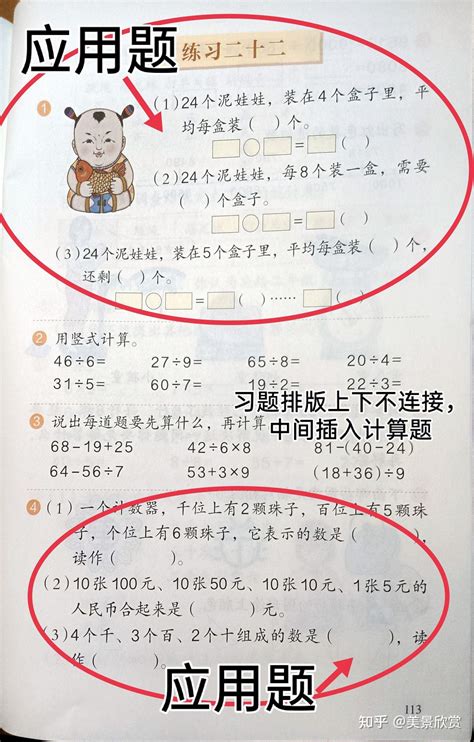 应用题
练习二十二
1
(1)24个泥娃娃，装在4个盒子里，平
均每盒装( )个。
□○□=□( )
(2)24个泥娃娃，每8个装一盒，需要
( )个盒子。
□○□=□( )
(3)24个泥娃娃，装在5个盒子里，平均每盒装( )个，
还剩( )个。
□○□=□( )……□( )
2 用竖式计算。
46÷6= 27÷9= 65÷8= 20÷4=
31÷5= 60÷7= 19÷2=
习题排版上下不连接，
中间插入计算题
3 说出每道题要先算什么，再计算
68-19+25 42÷6×8 81-(40-24)
64-56÷7 53+3×9 (18+36)÷9
4 (1)一个计数器，千位上有2颗珠子，百位上有5颗珠
子，个位上有6颗珠子，它表示的数是( )，
读作( )。
(2)10张100元、10张50元、10张10元、1张5元的
人民币合起来是( )元。
(3)4个千、3个百、2个十组成的数是( )，读
作( )。
应用题
113
知乎 @美景欣赏